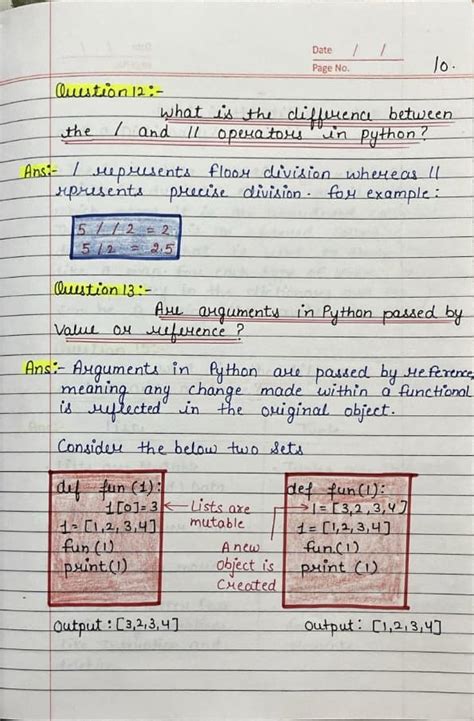 Date / /
Page No. 10.
Question 12:-
What is the difference between
the / and // operators in python?
Ans:- / represents floor division whereas //
rpresents precise division. for example:
5 / / 2 = 2
5 / 2 = 2.5
Question 13:-
Are arguments in Python passed by
value or reference?
Ans:- Arguments in Python are passed by reference,
meaning any change made within a functional
is reflected in the original object.
Consider the below two sets
def fun (l):
l[0]=3
l = [1,2,3,4]
fun (l)
print(l)
Lists are
mutable
A new
object is
Created
def fun(l):
l = [3,2,3,4]
l = [1,2,3,4]
fun(l)
print (l)
Output : [3,2,3,4]
Output: [1,2,3,4]